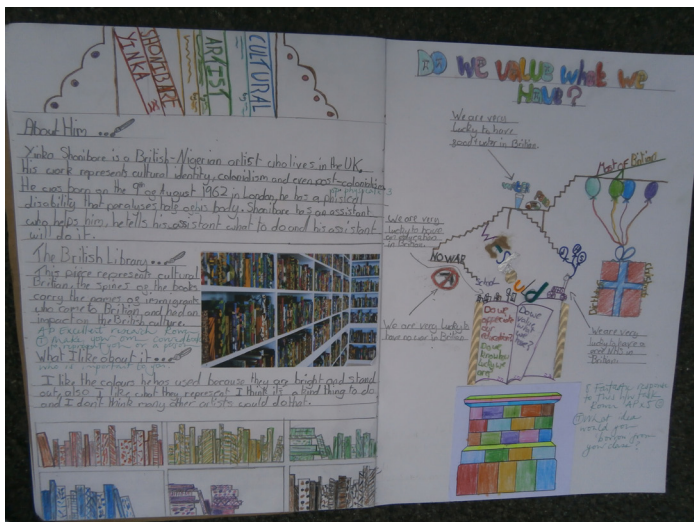 YINKA
SHONIBARE
ARTIST
CULTURAL
About Him
Yinka Shonibare is a British-Nigerian artist who lives in the UK.
His work represents cultural identity, colonialism and even post-colonialism
He was born on the 9th of August 1962 in London, he has a phisical
disability that paralyses half of his body. Shonibare has an assistant
who helps him, he tells his assistant what to do and his assistant
will do it.
The British Library
This piece represent cultural
Britian, the spines of the books
carry the names of immigrants
who come to Britian, and had an
impact on the British culture.
Excellent research
What I like about it...
who is important to you
I like the colours he has used because they are bright and stand
out, also I like what they represent I think its a kind thing to do
and I don't think many other artists would do that.
DO WE VALUE what we
HAVE?
We are very
lucky to have
good water in Britian.
Most of Britian
We are very
lucky to have
an education
in Britian.
NO WAR
School
We are very lucky to
have no war in Britian.
Do we
appreciate
our
education?
Do we
know how
lucky we
are
Do we
value
what
we
have?
We are very
lucky to have a
good NHS in
Britian.
Fantastic response
to this
What
would you